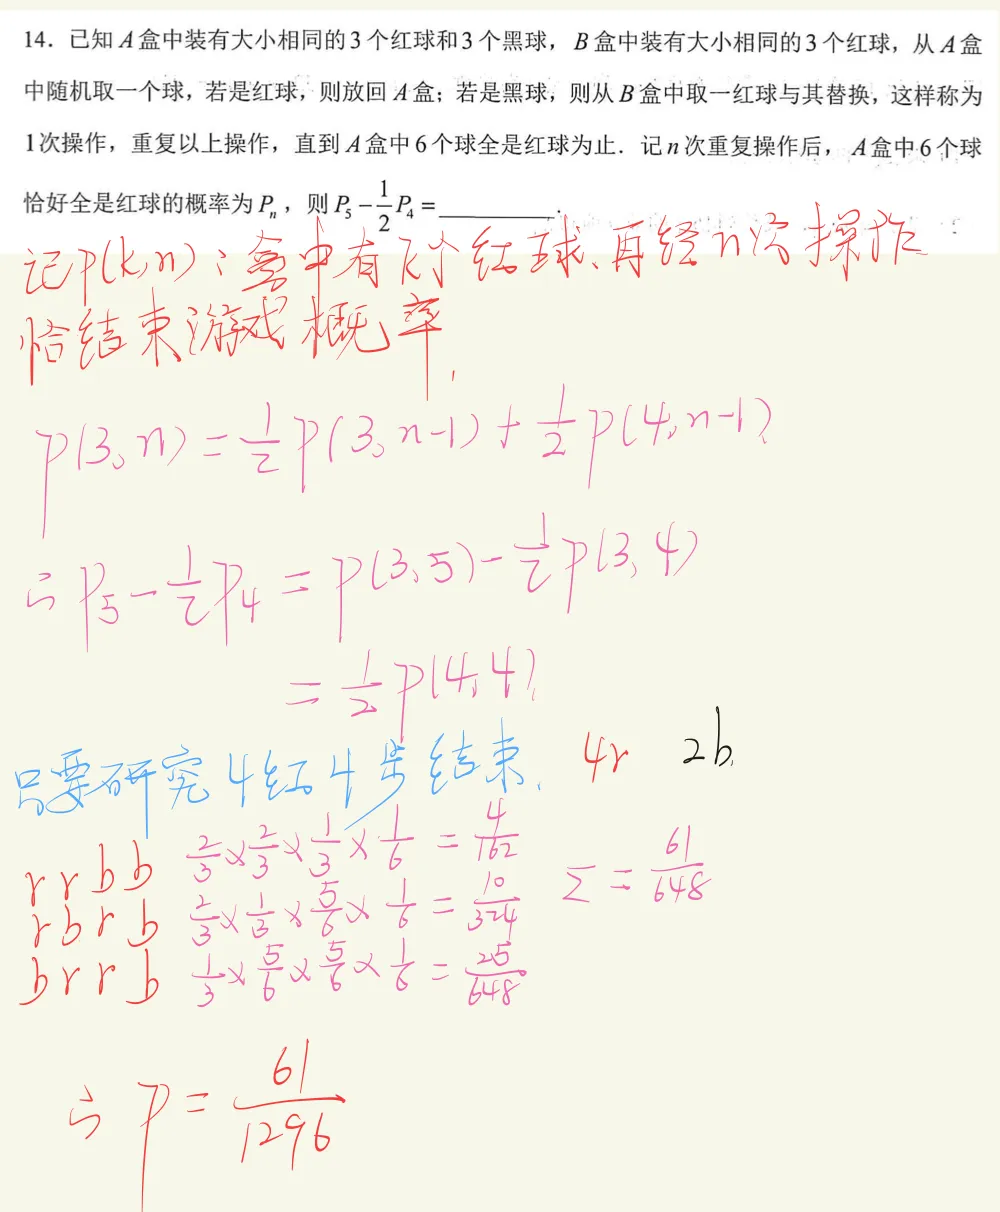 14. 已知 A 盒中装有大小相同的 3 个红球和 3 个黑球，B 盒中装有大小相同的 3 个红球，从 A 盒
中随机取一个球，若是红球，则放回 A 盒；若是黑球，则从 B 盒中取一红球与其替换，这样称为
1次操作，重复以上操作，直到 A 盒中 6 个球全是红球为止．记 n 次重复操作后，A 盒中 6 个球
恰好全是红球的概率为 Pₙ，则 P₅ − 1/2 P₄ = ________.
记p(k,n)：盒中有k个红球、再经n次操作
恰结束游戏概率.
p(3,n) = 1/2 p(3,n-1) + 1/2 p(4,n-1).
∴ p₅ − 1/2 p₄ = p(3,5) − 1/2 p(3,4)
= 1/2 p(4,4).
只要研究4红4步结束. 4r 2b.
r r b b 2/3 × 2/3 × 1/3 × 1/6 = 4/162
r b r b 2/3 × 1/3 × 5/6 × 1/6 = 10/324 Σ = 61/648
b r r b 1/3 × 5/6 × 5/6 × 1/6 = 25/648
∴ p = 61/1296